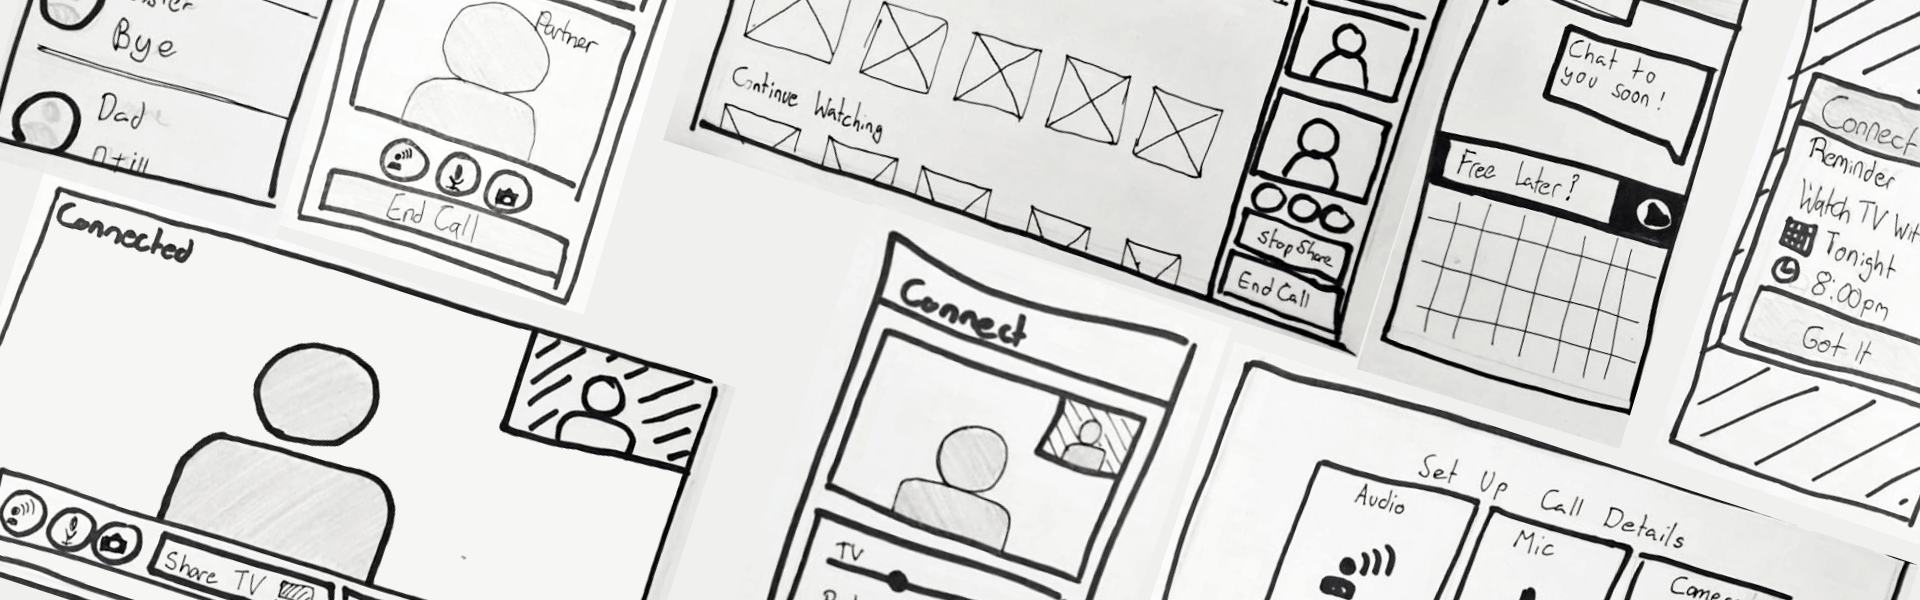 Bye
Dad
Partner
End Call
Continue Watching
Stop Share
End Call
Chat to
you soon!
Free Later?
Connect
Reminder
Watch TV
Tonight
8:00pm
Got It
Connected
Share TV
Connect
TV
Set Up Call Details
Audio
Mic